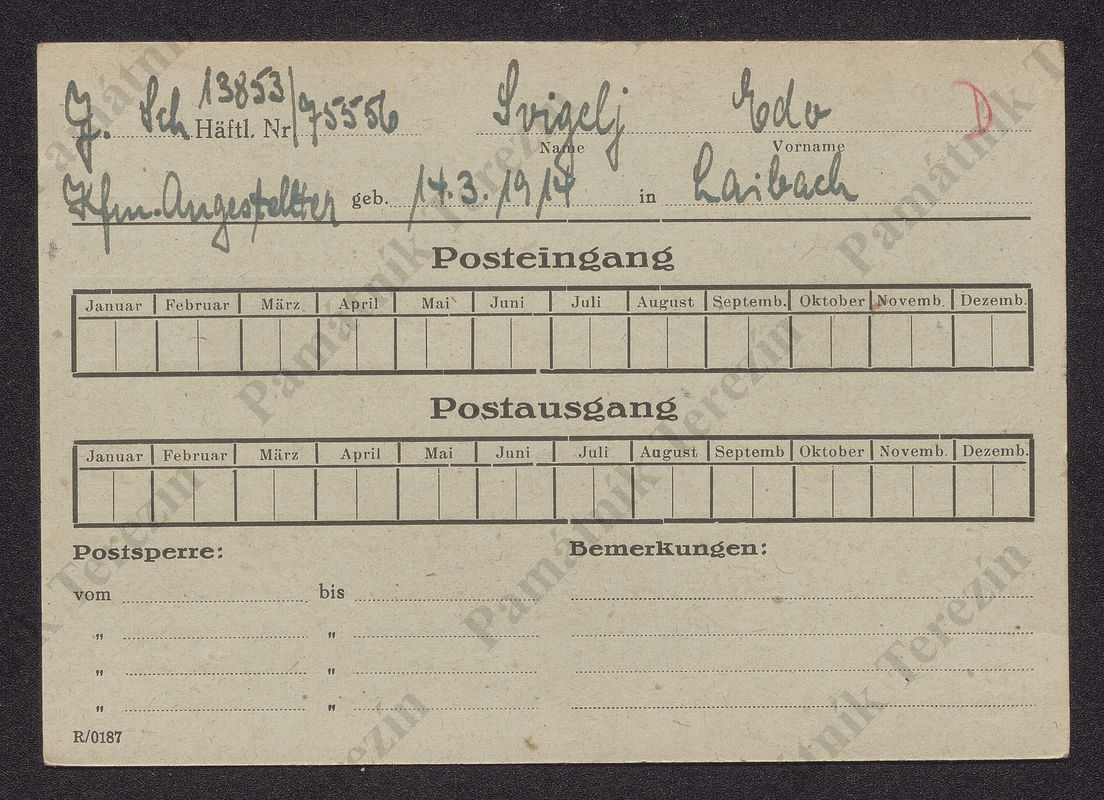 J. Sch Häftl. Nr 13853/75556 Svigelj Edo D
Name Vorname
Kfm. Angestellter geb. 14.3.1914 in Laibach
Posteingang
Januar Februar März April Mai Juni Juli August Septemb. Oktober Novemb. Dezemb.
Postausgang
Januar Februar März April Mai Juni Juli August Septemb Oktober Novemb. Dezemb.
Postsperre: Bemerkungen:
vom bis
" "
" "
" "
R/0187
Památník Terezín